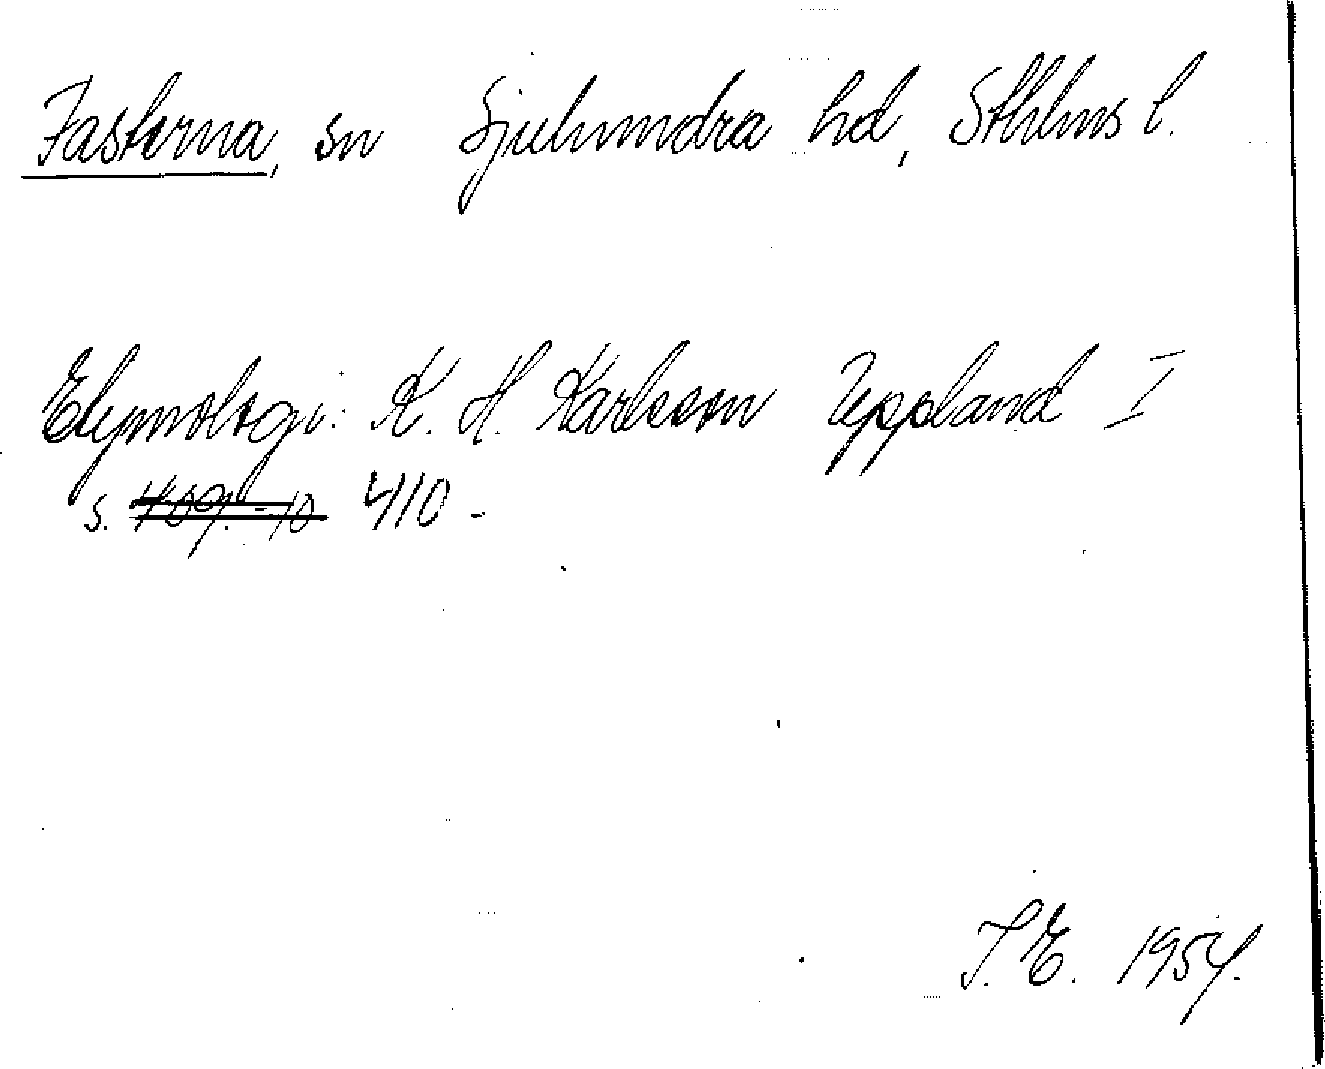 Fasterna, sn Sjuhundra hd, Sthlms l.
Etymologi: K. H. Karlsson Uppland I
s. 409. -10 410 -
I.E. 1954.